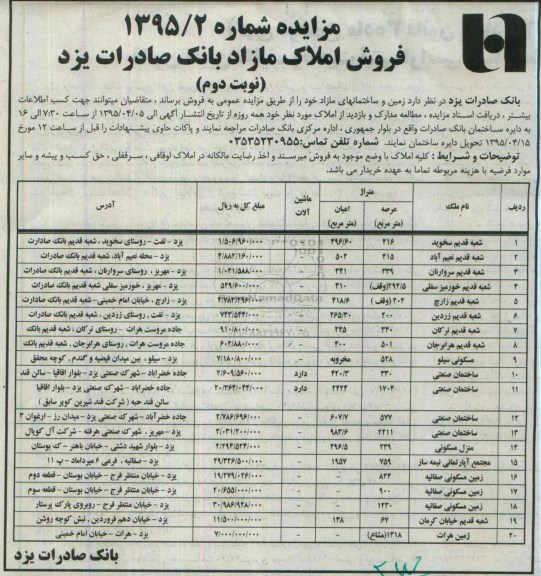 مزایده شماره ۱۳۹۵/۲
فروش املاک مازاد بانک صادرات یزد
(نوبت دوم)
بانک صادرات یزد در نظر دارد زمین و ساختمانهای مازاد خود را از طریق مزایده عمومی به فروش برساند ، متقاضیان میتوانند جهت کسب اطلاعات
بیشتر ، دریافت اسناد مزایده ، مطالعه مدارک و بازدید از املاک مورد نظر خود همه روزه از تاریخ انتشار آگهی الی ۱۳۹۵/۰۴/۰۵ از ساعت ۷:۳۰ الی ۱۶
به دایره ساختمان بانک صادرات واقع در بلوار جمهوری ، اداره مرکزی بانک صادرات مراجعه نمایند و پاکات حاوی پیشنهادات را قبل از ساعت ۱۲ مورخ
۱۳۹۵/۰۴/۱۵ تحویل دایره ساختمان نمایند. شماره تلفن تماس: ۰۳۵۳۵۲۳۰۹۵۵
توضیحات و شرایط : کلیه املاک با وضع موجود به فروش میرسند و اخذ رضایت مالکانه در املاک اوقافی ، سرقفلی ، حق کسب و پیشه و سایر
موارد فرضیه با هزینه مربوطه تماما به عهده خریدار می باشد.
ردیف نام ملک متراژ عرصه (متر مربع) اعیان (متر مربع) ماشین آلات مبلغ کل به ریال آدرس
۱ شعبه قدیم سخوید ۲۱۶ ۲۹۶/۶۰ - ۱/۵۰۶/۹۶۰/۰۰۰ یزد - تفت - روستای سخوید ، شعبه قدیم بانک صادارت
۲ شعبه قدیم نعیم آباد ۲۱۵ ۵۰۲ - یزد - محله نعیم آباد، شعبه قدیم بانک صادرات
۳ شعبه قدیم سروارنان ۳۳۹ ۳۴۱ - ۱/۰۴۱/۵۸۸/۰۰۰ یزد - مهریز ، روستای سروارنان ، شعبه قدیم بانک صادرات
۴ شعبه قدیم خورمیز سفلی ۲۹۲/۵(وقف) ۴۱۰ - ۵۲۹/۶۰۰/۰۰۰ یزد - مهریز ، خورمیز سفلی شعبه قدیم بانک صادرات
۵ شعبه قدیم زارچ ۲۰۲ (وقف) ۴۱۸/۶ - یزد - زارچ ، خیابان امام خمینی - شعبه قدیم بانک صادرات
۶ شعبه قدیم زردین ۲۰۰ ۲۶۵/۳۰ - ۷۴۳/۵۴۴/۰۰۰ یزد - تفت ، روستای زردین ، شعبه قدیم بانک صادرات
۷ شعبه قدیم ترکان ۳۴۰ ۲۴۵ - ۹۱۰/۸۰۰/۰۰۰ جاده مروست هرات - روستای ترکان ، شعبه قدیم بانک
۸ شعبه قدیم هرابرجان ۵۰۱ ۳۰۰ - ۶۰۲/۸۸۰/۰۰۰ جاده مروست هرات ، روستای هرابرجان ، شعبه قدیم بانک
۹ مسکونی سیلو ۵۲۸ مخروبه - ۷/۱۸۰/۸۰۰/۰۰۰ یزد - سیلو ، بین میدان فیضیه و گندم ، کوچه محقق
۱۰ ساختمان صنعتی ۳۳۰ ۴۲۰/۳ دارد ۲/۶۰۹/۵۶۰/۰۰۰ جاده خضراباد - شهرک صنعتی یزد - بلوار اقاقیا - سالن قند
۱۱ ساختمان صنعتی ۱۷۰۴ ۲۴۲۴ دارد ۲۰/۳۶۴/۰۴۴/۰۰۰ جاده خضراباد - شهرک صنعتی یزد - بلوار اقاقیا
سالن قند حبه ( شرکت قند شیرین کویر سابق )
۱۲ ساختمان صنعتی ۵۷۷ ۶۰۷/۷ - ۲/۷۸۶/۶۹۶/۰۰۰ جاده خضرآباد - شهرک صنعتی یزد - میدان رز - ارغوان ۳
۱۳ ساختمان صنعتی ۲۲۱۱ ۹۸۳/۶ - ۴/۰۳۱/۲۰۰/۰۰۰ یزد - مهریز ، شهرک صنعتی هرفته - شرکت آل کوپال
۱۴ منزل مسکونی ۲۳۹ ۲۹۶/۵ - ۲/۲۹۲/۵۲۴/۰۰۰ یزد - بلوار شهید دشتی - خیابان باهنر - ک بوستان
۱۵ مجتمع آپارتمانی نیمه ساز ۷۵۹ ۱۹۵۷ - ۲۹/۳۲۶/۵۰۰/۰۰۰ یزد - صفائیه ، فرعی ۶ میرداماد - پ ۱۱
۱۶ زمین مسکونی صفائیه ۸۳۴ - - ۱۹/۲۷۹/۰۲۶/۰۰۰ یزد - خیابان منتظر فرج - خیابان بوستان - قطعه دوم
۱۷ زمین مسکونی صفائیه ۹۰۰ - - ۲۰/۶۵۵/۰۰۰/۰۰۰ یزد - خیابان منتظر فرج - خیابان بوستان - قطعه سوم
۱۸ زمین مسکونی صفائیه ۱۲۳۰ - - ۳۰/۹۸۶/۹۲۸/۰۰۰ یزد - خیابان منتظر فرج - روبروی پارک پرستار
۱۹ شعبه قدیم خیابان کرمان ۶۷ ۱۳۸ - ۱۱/۵۰۰/۰۰۰/۰۰۰ یزد - خیابان دهم فروردین ، نبش کوچه روشن
۲۰ زمین هرات ۱۳۱۸(مشاع) - - ۷/۰۰۰/۰۰۰/۰۰۰ یزد - هرات - خیابان امام خمینی
بانک صادرات یزد